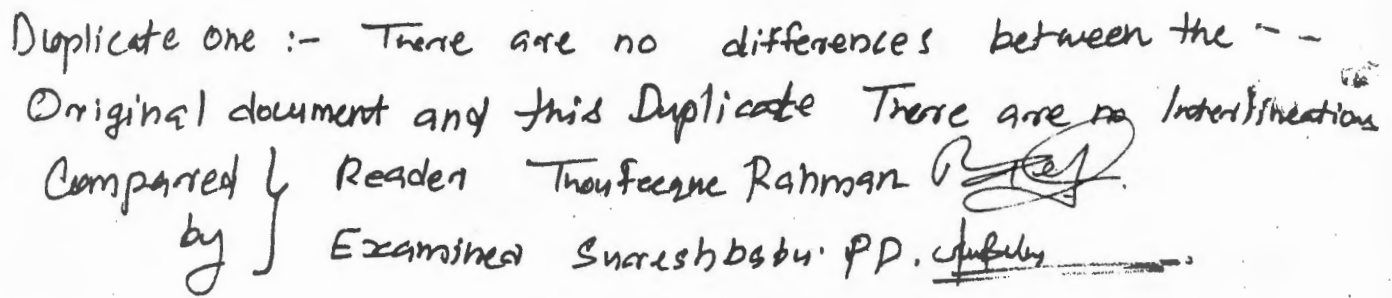 Duplicate one :- There are no differences between the - -
Original document and this Duplicate There are no Interlineations
Compared } Reader Thoufeeque Rahman
by } Examiner Sureshbabu. P D.